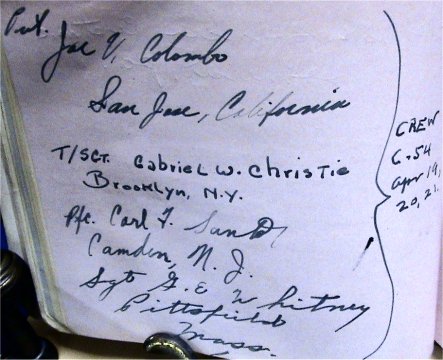 Pvt. Joe V. Colombo
San Jose, California
T/SGT. Gabriel W. Christie
Brooklyn, N.Y.
Pfc. Carl F.
Camden, N. J.
Sgt G. E Whitney
Pittsfield
Mass.
CREW
C-54
Apr 19,
20, 21.